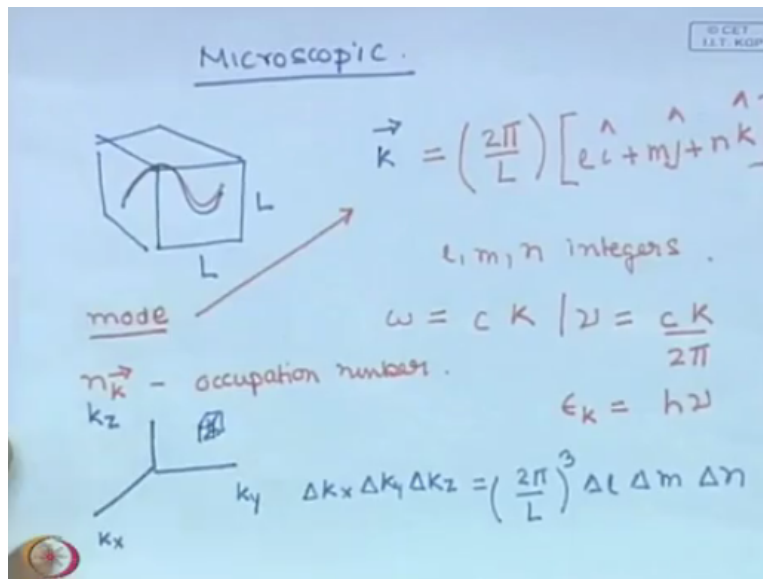 © CET
I.I.T. KGP
Microscopic.
k⃗ = (2π/L) [l î + m ĵ + n k̂
L
L
l, m, n integers.
mode
ω = c k / ν = ck/2π
n_k⃗ - occupation number.
ϵ_k = hν
k_z
k_y
k_x
Δk_x Δk_y Δk_z = (2π/L)³ Δl Δm Δn